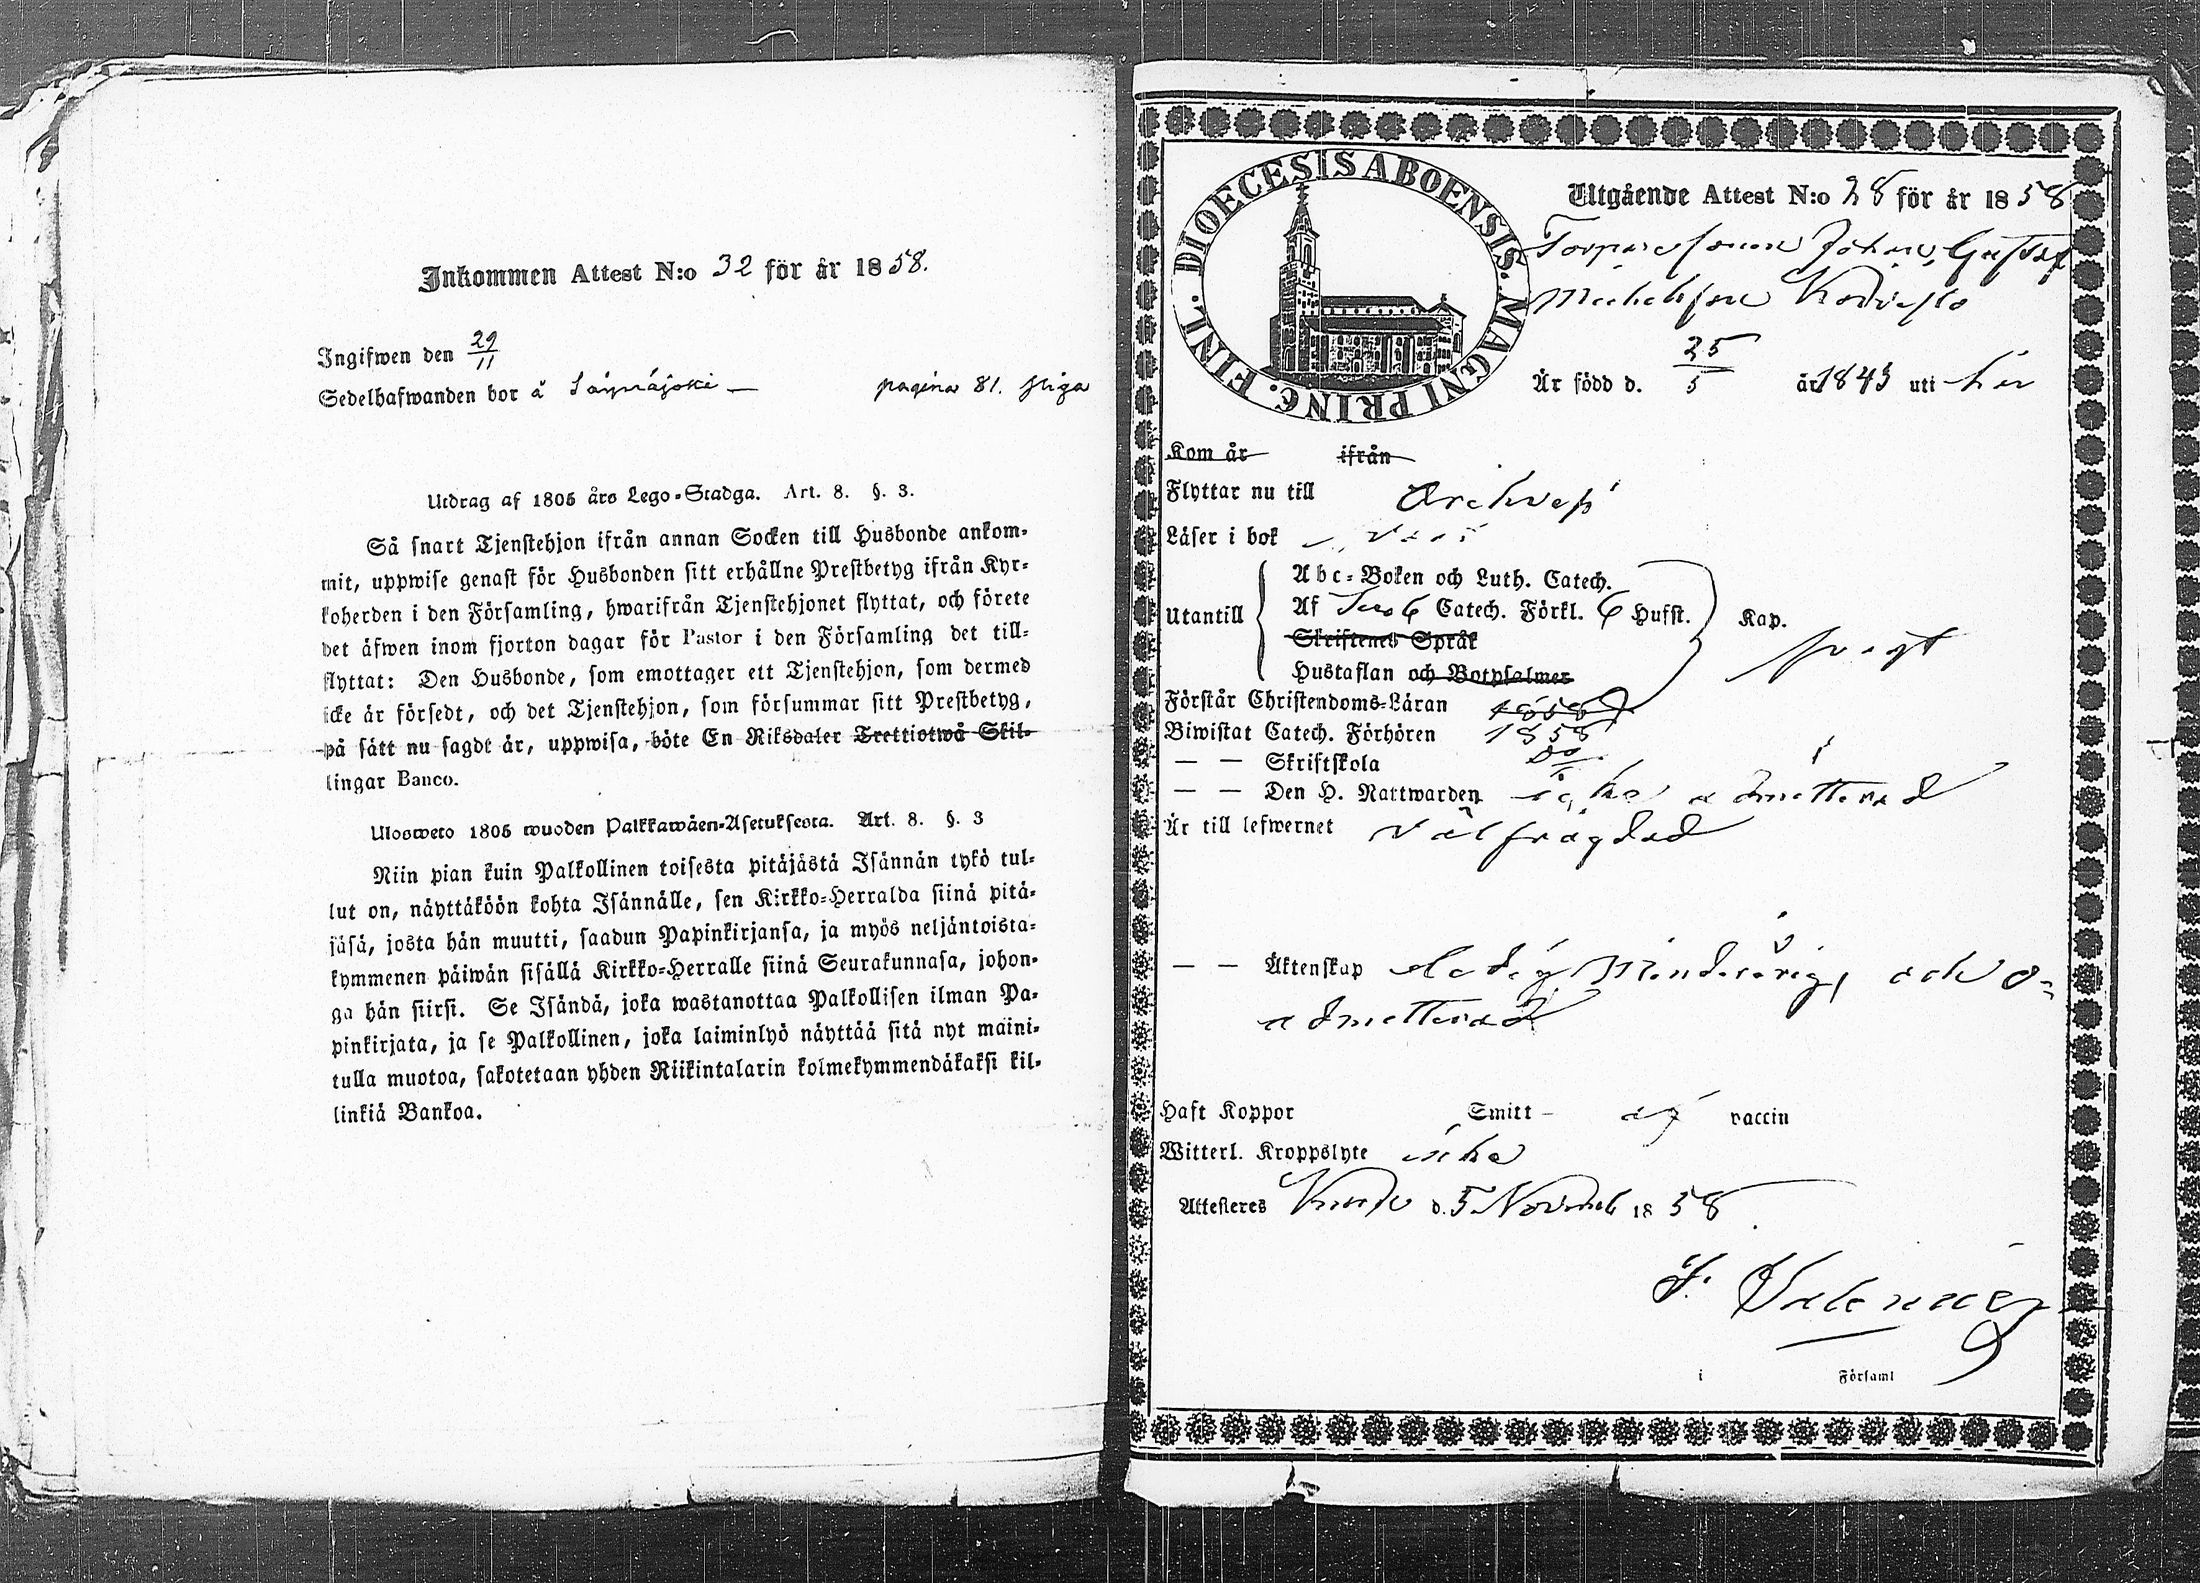 Inkommen Attest N:o 32 för år 1858.
Ingifwen den 29/11
Sedelhafwanden bor å Säynäjoki — pagina 81.
Utdrag af 1805 års Lego-Stadga. Art. 8. §. 3.
Så snart Tjenstehjon ifrån annan Socken till Husbonde ankom-
mit, uppwise genast för Husbonden sitt erhållne Prestbetyg ifrån Kyr-
koherden i den Församling, hwarifrån Tjenstehjonet flyttat, och förete
det äfwen inom fjorton dagar för Pastor i den Församling det till-
flyttat: Den Husbonde, som emottager ett Tjenstehjon, som dermed
icke är försedt, och det Tjenstehjon, som försummar sitt Prestbetyg,
på sätt nu sagdt är, uppwisa, böte En Riksdaler Trettiotwå Skil-
lingar Banco.
Ulosweto 1805 wuoden Palkkawäen-Asetuksesta. Art. 8. §. 3
Niin pian kuin Palkollinen toisesta pitäjästä Isännän tykö tul-
lut on, näyttäköön kohta Isännälle, sen Kirkko-Herralda siinä pitä-
jäsä, josta hän muutti, saadun Papinkirjansa, ja myös neljäntoista-
kymmenen päiwän sisällä Kirkko-Herralle siinä Seurakunnasa, johon-
ga hän siirsi. Se Isändä, joka wastanottaa Palkollisen ilman Pa-
pinkirjata, ja se Palkollinen, joka laiminlyö näyttää sitä nyt maini-
tulla muotoa, sakotetaan yhden Riikintalarin kolmekymmendäkaksi kil-
linkiä Bankoa.
DIOECESIS ABOENSIS. MAGNI PRINC. FINL.
Utgående Attest N:o 28 för år 1858
Torparesonen Johan Gustaf
Michelsson Koivisto
Är född d. 25/5 år 1843 uti här
Kom år ifrån
Flyttar nu till
Läser i bok
Utantill
Abc-Boken och Luth. Catech.
Af Catech. Förkl. 6 Hufst. Kap.
Skriftenes Språk
Hustaflan och Botpsalmer
Förstår Christendoms-Läran 1858
Biwistat Catech. Förhören 1858
— — Skriftskola do
— — Den H. Nattwarden icke admitterad
Är till lefwernet välfrägdad
— — Äktenskap ledig, Minderårig, och o-
admitterad
Haft Koppor Smitt- ej vaccin
Witterl. Kroppslyte icke
Attesteres d. 5 Novemb 1858
i Församl